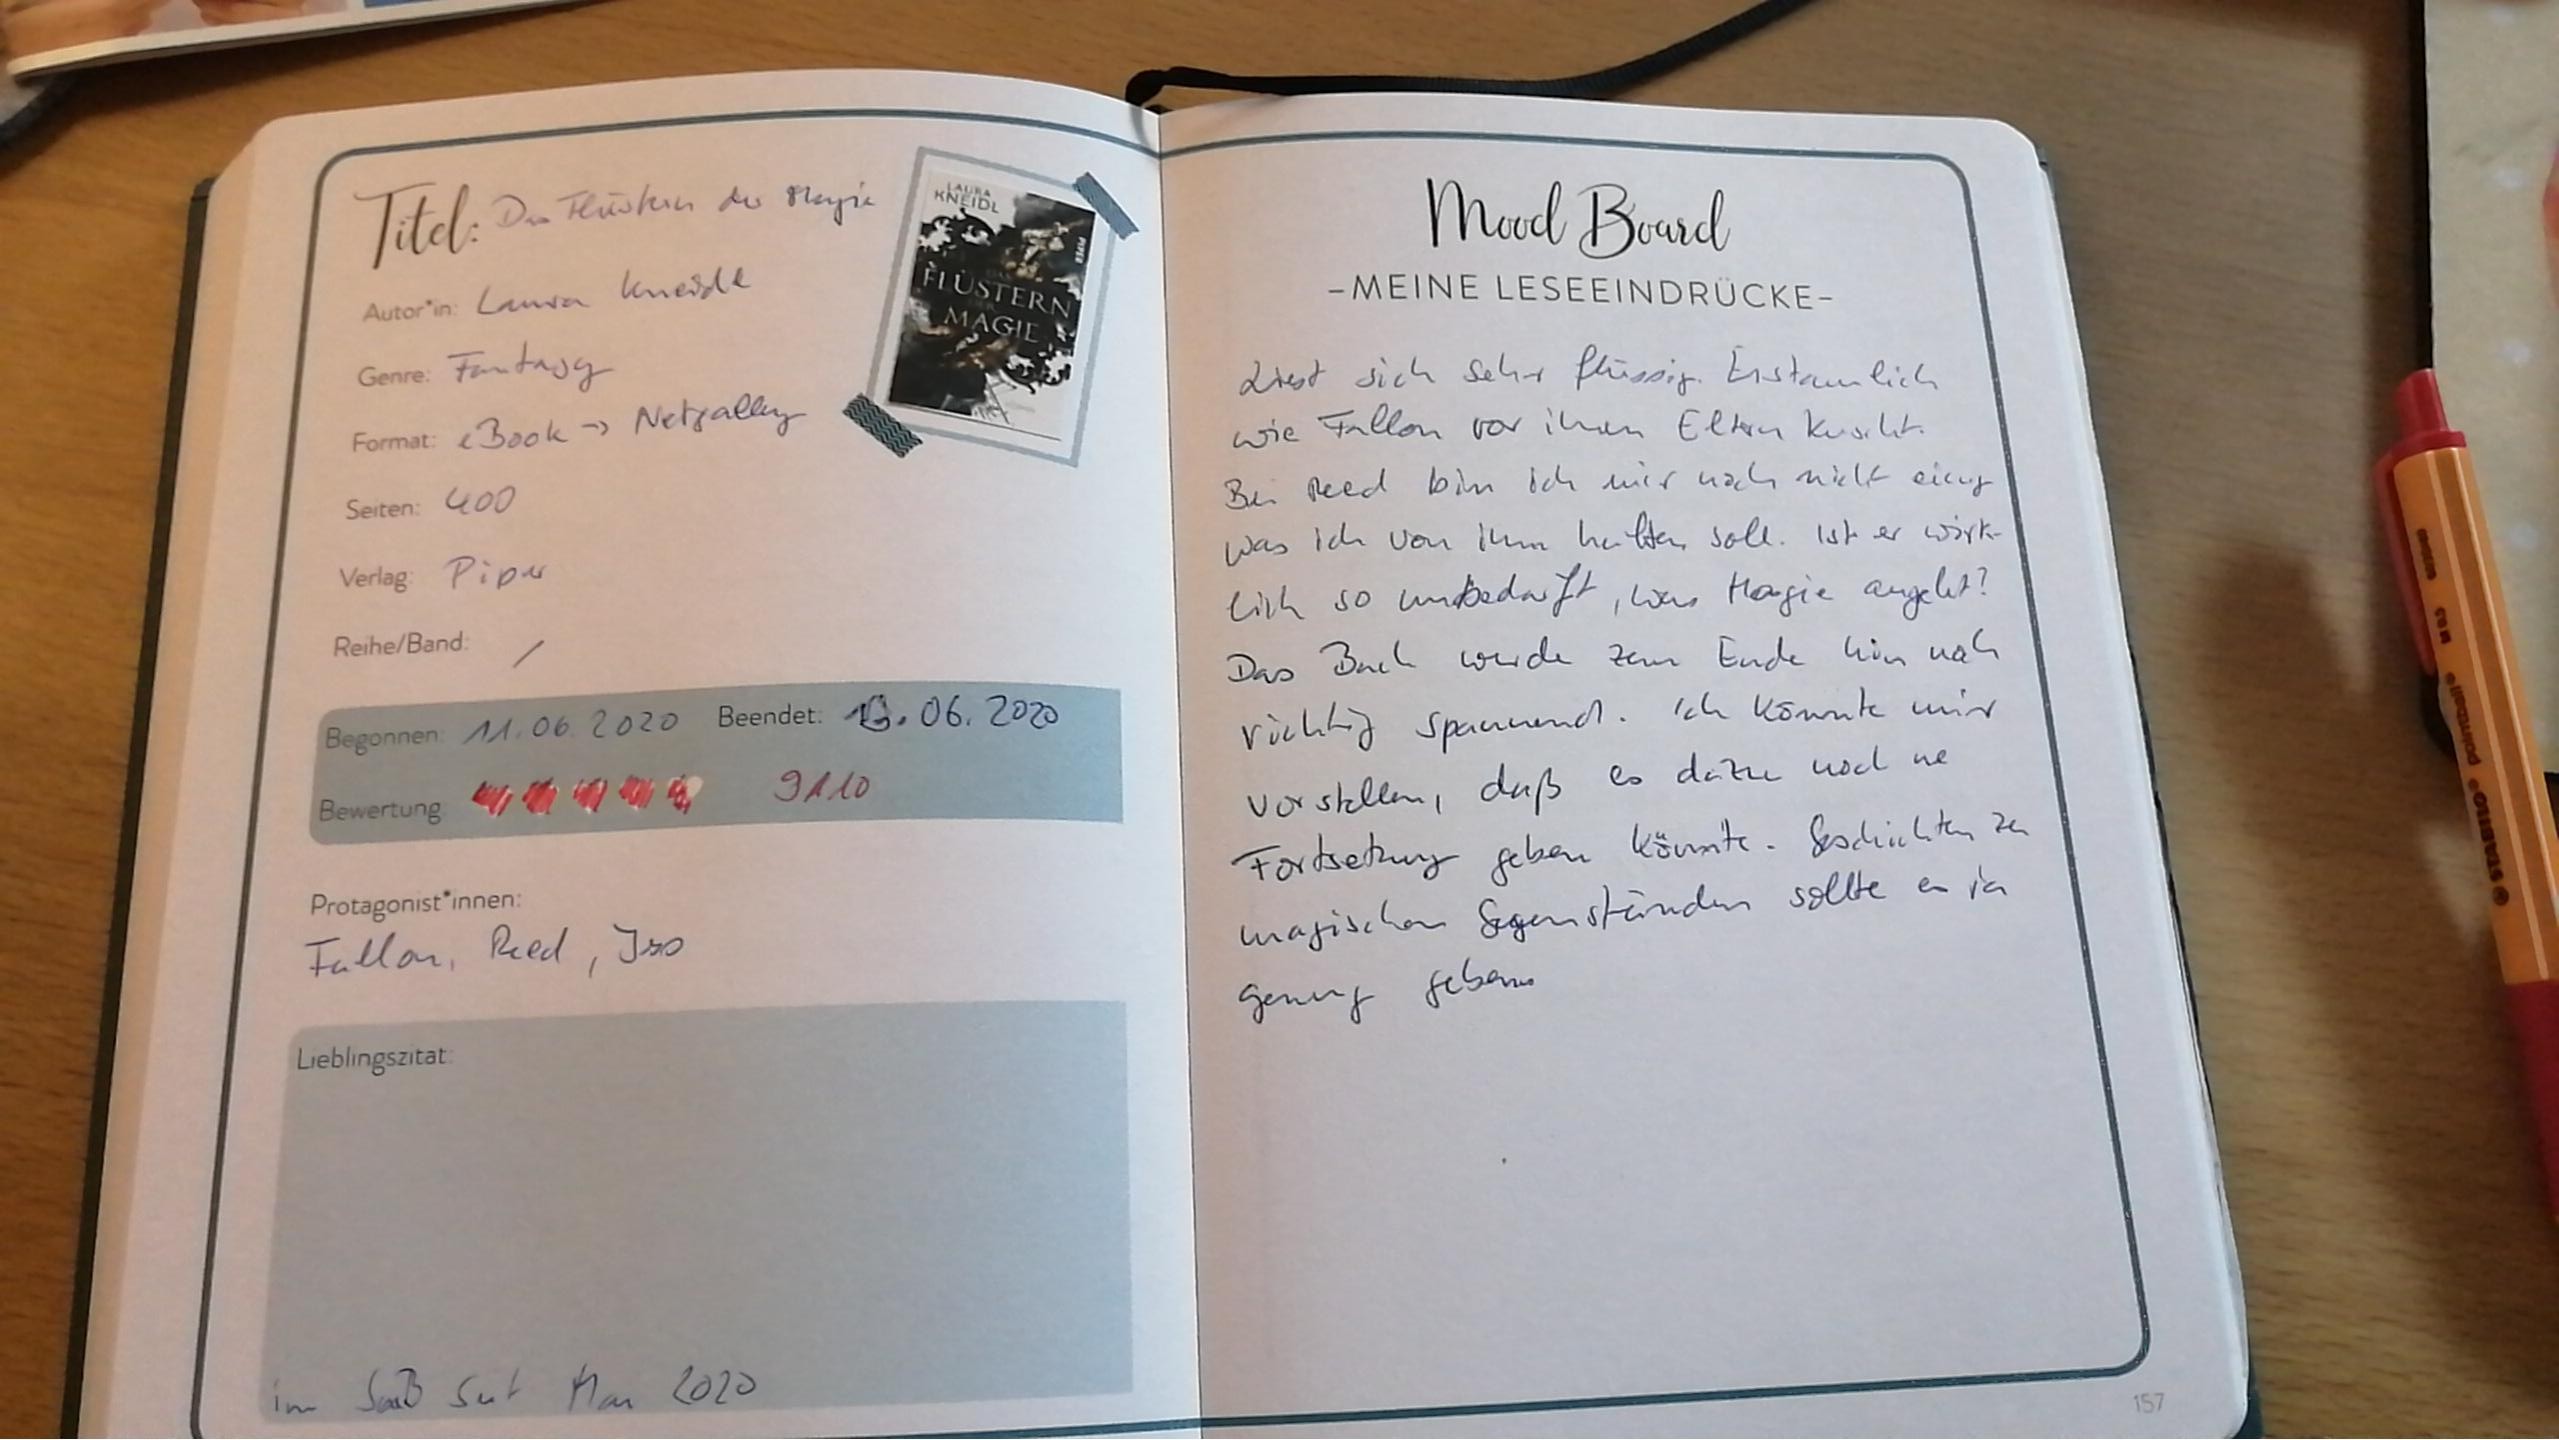 Titel: Das Flüstern der Magie
LAURA
KNEIDL
PIPER
FLÜSTERN
MAGIE
Autor*in: Laura Kneidl
Genre: Fantasy
Format: eBook → Netgalley
Seiten: 400
Verlag: Piper
Reihe/Band: /
Begonnen: 11.06.2020 Beendet: .06.2020
Bewertung 9/10
Protagonist*innen:
Fallon, Reed, Jess
Lieblingszitat:
im SuB seit Mai 2020
Mood Board
-MEINE LESEEINDRÜCKE-
Liest sich sehr flüssig. Erstaunlich
wie Fallon vor ihren Eltern kuscht.
Bei Reed bin ich mir noch nicht einig
was ich von ihm halten soll. Ist er wirk-
lich so unbedarft, was Magie angeht?
Das Buch wurde zum Ende hin noch
richtig spannend. Ich könnte mir
vorstellen, daß es dazu noch ne
Fortsetzung geben könnte. Geschichten zu
magischen Gegenständen sollte es ja
genug geben.
157
STABILO point 88